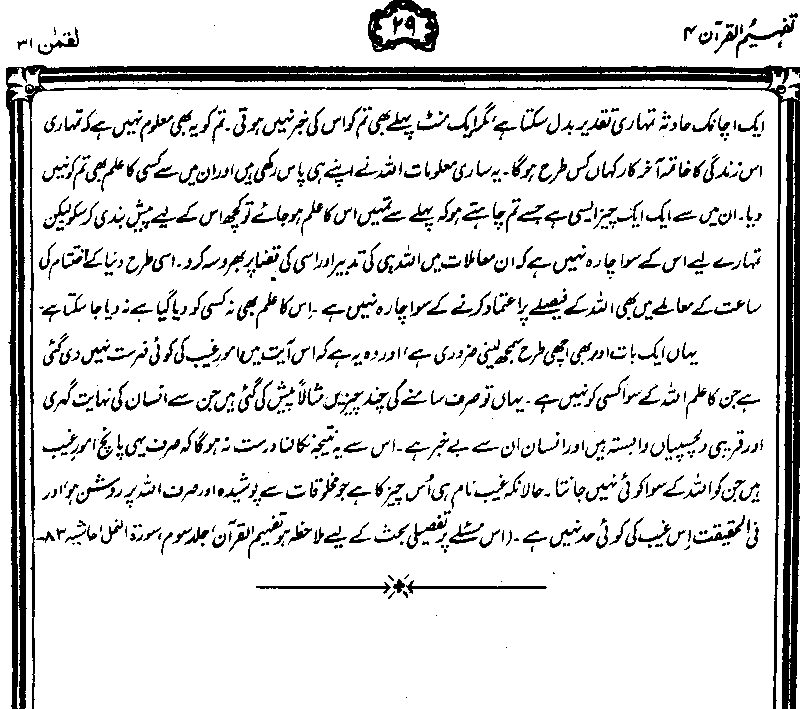 تفہیم القرآن ۴
۲۹
لقمٰن ۳۱
ایک اچانک حادثہ تمہاری تقدیر بدل سکتا ہے، مگر ایک منٹ پہلے بھی تم کو اس کی خبر نہیں ہوتی۔ تم کو یہ بھی معلوم نہیں ہے کہ تمہاری
اس زندگی کا خاتمہ آخر کار کہاں کس طرح ہوگا۔ یہ ساری معلومات اللہ نے اپنے ہی پاس رکھی ہیں اور ان میں سے کسی کا علم بھی تم کو نہیں
دیا۔ ان میں سے ایک ایک چیز ایسی ہے جسے تم چاہتے ہو کہ پہلے سے تمہیں اس کا علم ہو جائے تو کچھ اس کے لیے پیش بندی کر سکو لیکن
تمہارے لیے اس کے سوا چارہ نہیں ہے کہ ان معاملات میں اللہ ہی کی تدبیر اور اسی کی قضا پر بھروسہ کرو۔ اسی طرح دنیا کے اختتام کی
ساعت کے معاملے میں بھی اللہ کے فیصلے پر اعتماد کرنے کے سوا چارہ نہیں ہے۔ اِس کا علم بھی نہ کسی کو دیا گیا ہے نہ دیا جا سکتا ہے۔
یہاں ایک بات اور بھی اچھی طرح سمجھ لینی ضروری ہے، اور وہ یہ ہے کہ اس آیت میں امورِ غیب کی کوئی فہرست نہیں دی گئی
ہے جن کا علم اللہ کے سوا کسی کو نہیں ہے۔ یہاں تو صرف سامنے کی چند چیزیں مثالاً پیش کی گئی ہیں جن سے انسان کی نہایت گہری
اور قریبی دلچسپیاں وابستہ ہیں اور انسان ان سے بے خبر ہے۔ اس سے یہ نتیجہ نکالنا درست نہ ہوگا کہ صرف یہی پانچ امورِ غیب
ہیں جن کو اللہ کے سوا کوئی نہیں جانتا۔ حالانکہ غیب نام ہی اُس چیز کا ہے جو مخلوقات سے پوشیدہ اور صرف اللہ پر روشن ہو، اور
فی الحقیقت اِس غیب کی کوئی حد نہیں ہے۔ (اس مسئلے پر تفصیلی بحث کے لیے ملاحظہ ہو تفہیم القرآن، جلد سوم، سورۃ النمل، حاشیہ ۸۳۔